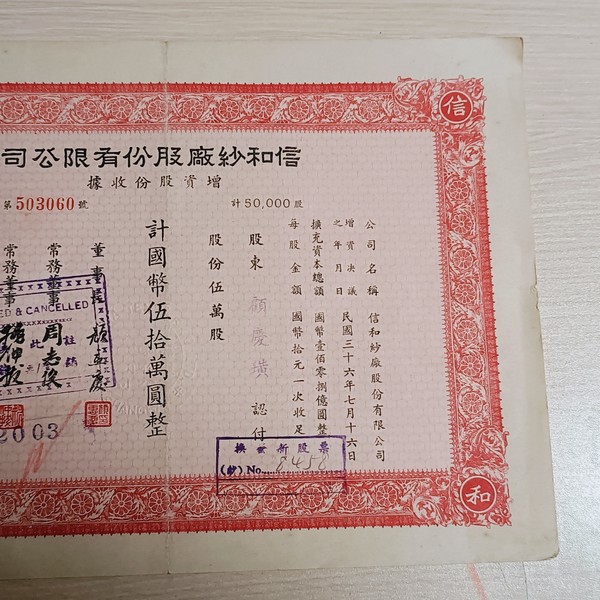 信
信和紗廠股份有限公司
增資股份收據
計50,000股
第503060號
公司名稱 信和紗廠股份有限公司
增資決議之年月日 民國三十六年七月十六日
擴充資本總額 國幣壹佰零捌億圓整
每股金額 國幣拾元一次收足
股東 顧慶璜 認付
股份伍萬股
計國幣伍拾萬圓整
董事長
常務董事 周志俊
常務董事
ED & CANCELLED
此 註銷
2003
換發新股票
(紗) No.
和